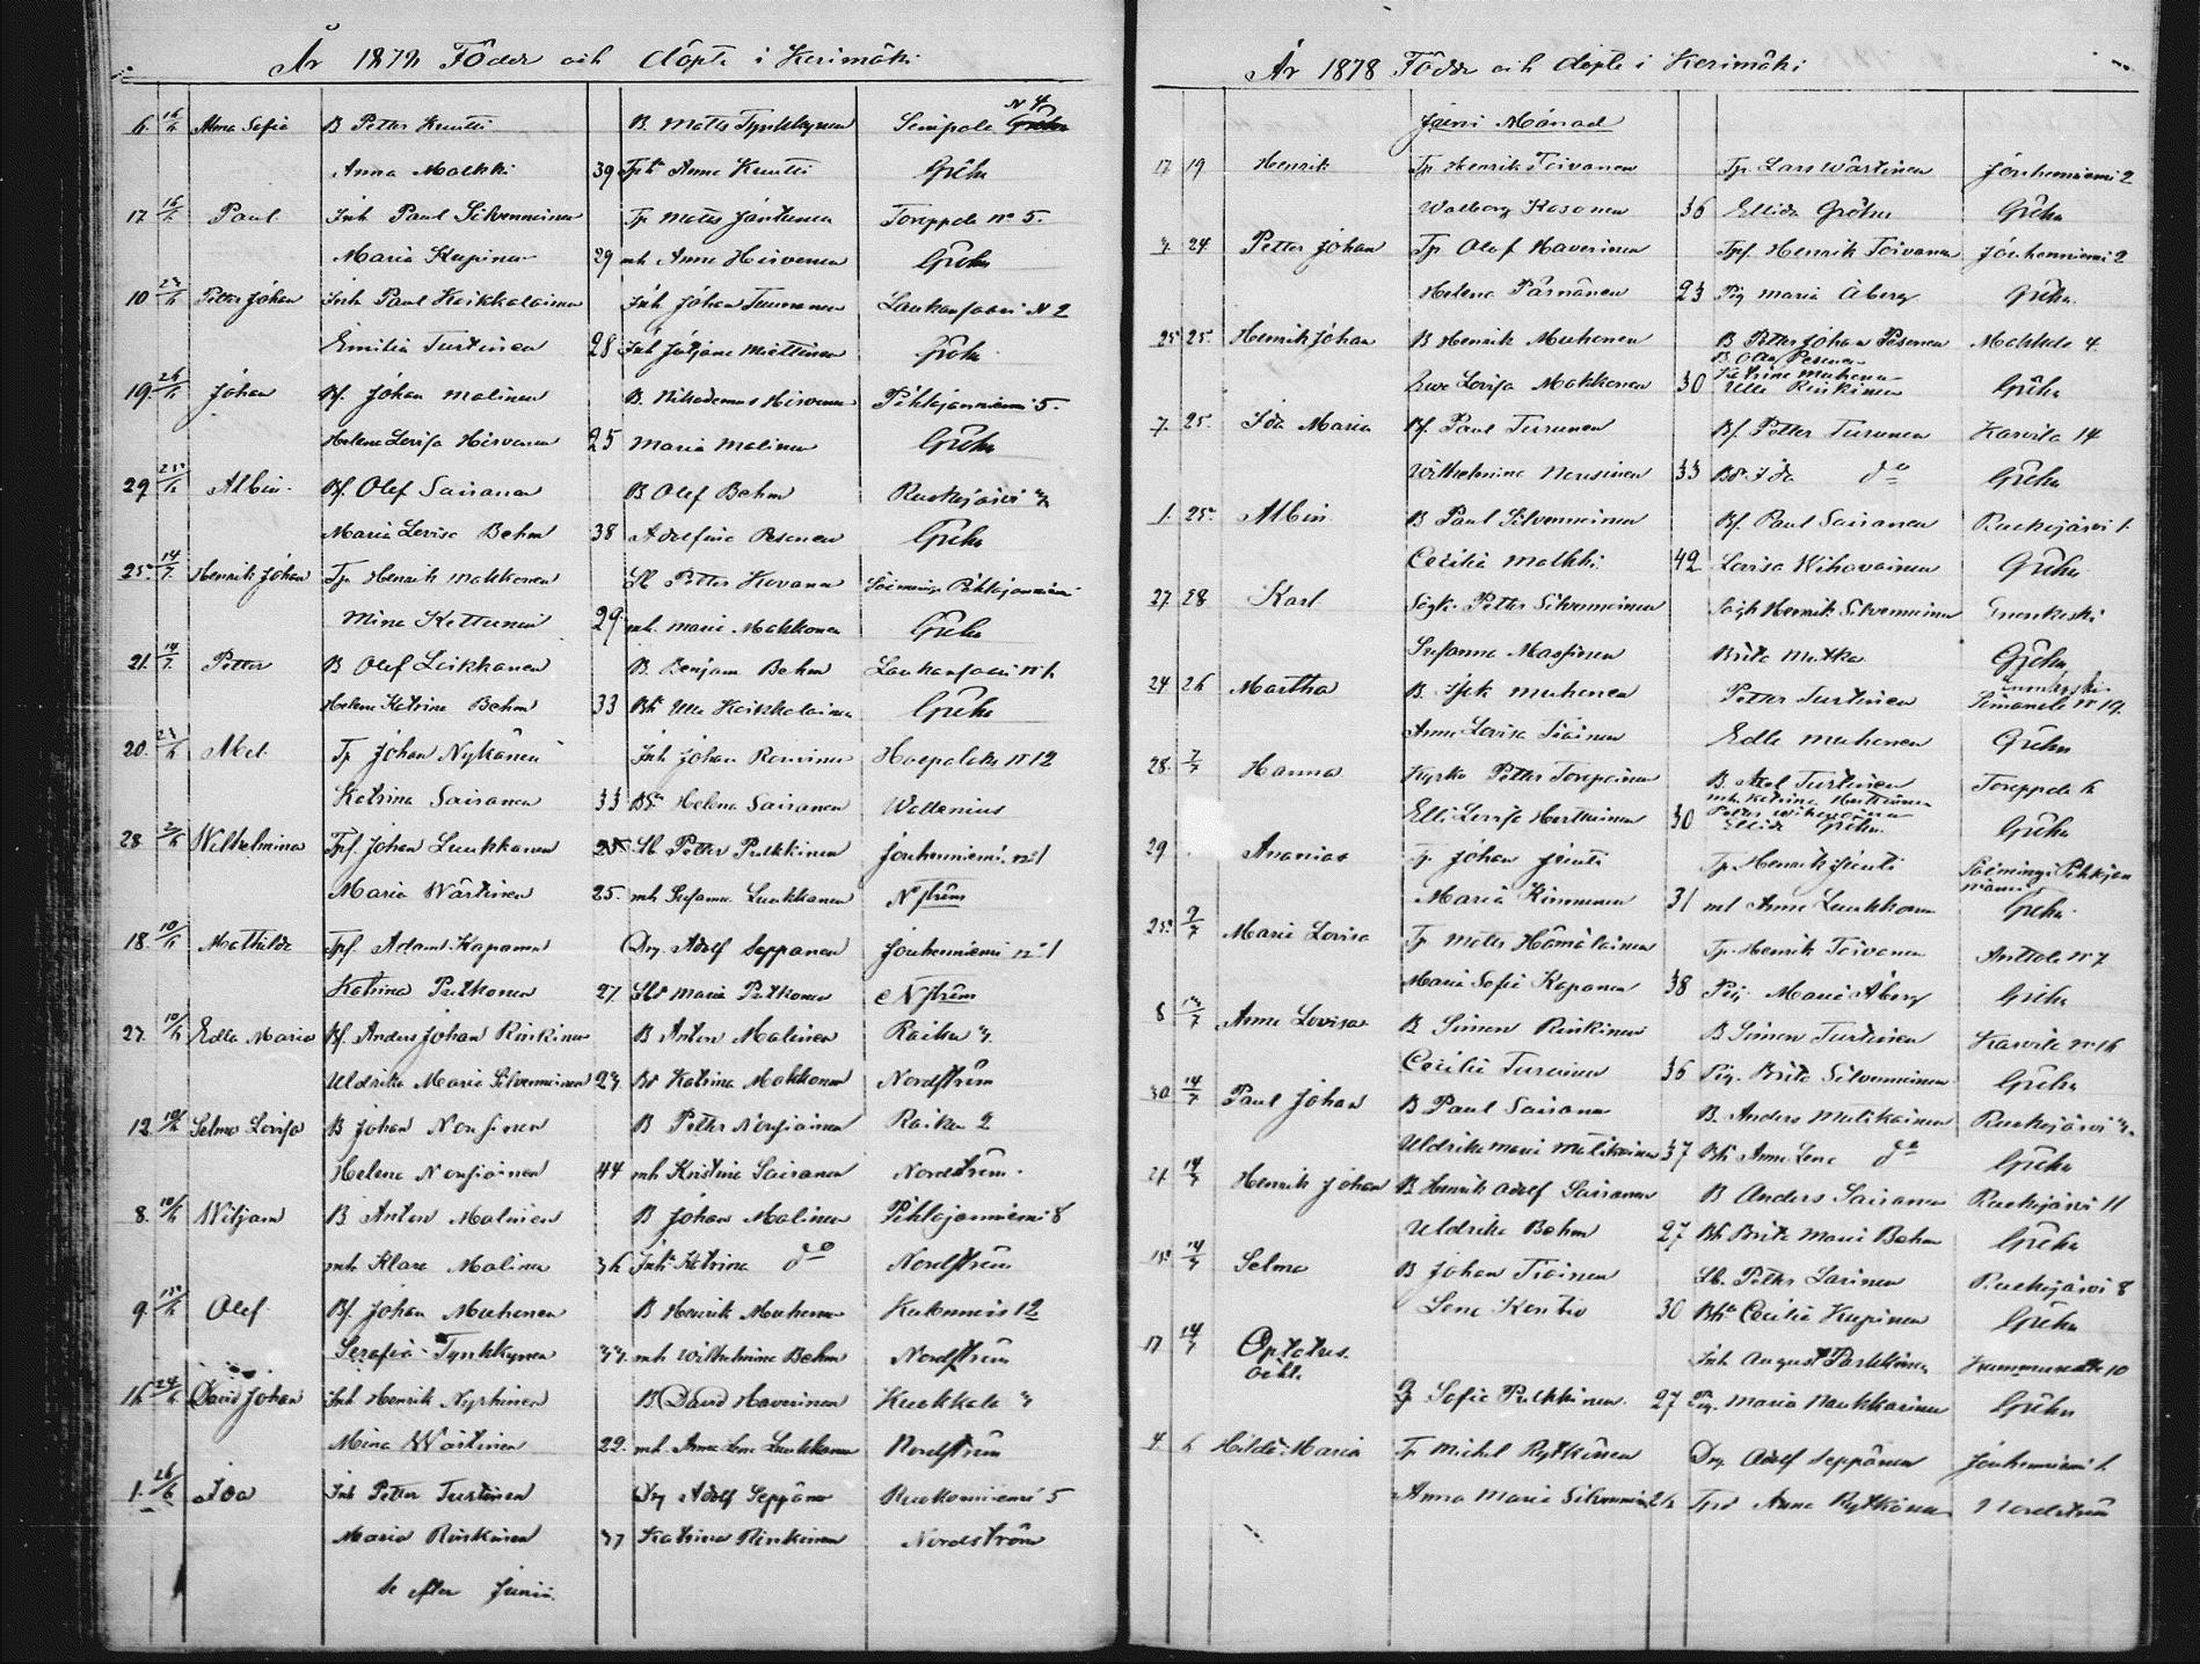 År 1878 Födde och döpte i Kerimäki
6. 16/6 Alma Sofia B Petter Kuutti B. Matts Tynkkynen Simpala N 4
Anna Malkki 39 Anna Kuutti Gröhn
17 16/6 Paul Inh Paul Silvennoinen Tp Matts Jäntunen Toroppala no 5.
Maria Kupinen 29 mh Anna Hirvonen Gröhn
10 Petter Johan Inh Paul Kaikkalainen Inh Johan Tuunanen Laukansaari N 2
Emilia Turtinen 28 Inh Miettinen Gröhn
19. Johan Bf. Johan Malinen B. Nikodemus Hirvonen Pihlajanniemi 5.
Helena Lovisa Hirvonen 25 Maria Malinen Gröhn
29 25/6 Albin Bf. Olof Sairanen B Olof Behm Ruokojärvi
Maria Lovisa Behm 38 Adolfina Pesonen Gröhn
25. 14/7 Henrik Johan Tp. Henrik Makkonen Sl Petter Kovanen Säminge Pihlajaniemi
Mina Kettunen 29 mh. Maria Makkonen Gröhn
21. 14/7 Petter B Olof Leikkanen B. Benjam Behm Laukansaari
Helena Katrina Behm 33 Bh Ulla Kaikkalainen Gröhn
20. Abel Tp Johan Nykänen Inh Johan Rouvinen Haapalaks N 12
Katrina Sairanen 33 Helena Sairanen Wallenius
28 Wilhelmina Tpf. Johan Luukkanen Sl Petter Pulkkinen Jouhenniemi no 1
Maria Wärtinen 25. mh Susanna Luukkanen Nström
18. 10/6 Mathilda Tpf. Adam Kapanen Drg. Adolf Seppänen Jouhenniemi no 1
Katrina Pulkkonen 27 Maria Pulkkonen Nström
27. 10/6 Edla Maria Bf. Anders Johan Rinkinen B Anton Malinen Raikuu
Uldrika Maria Silvennoinen 23. Bd Katrina Makkonen Nordström
12. 10/6 Selma Lovisa B Johan Nousiainen B Petter Nousiainen Raikuu 2
Helena Nousiainen 44 mh Kristina Sairanen Nordström
8. 10/6 Wiljam B Anton Malinen B Johan Malinen Pihlajanniemi 8
mh Klara Malinen 36 Inh Katrina do Nordström
9. 15/6 Olof Bf. Johan Muhonen B Henrik Muhonen 12
Serafia Tynkkynen 33. mh Wilhelmina Behm Nordström
16 24/6 David Johan Inh Henrik Nyrhinen B David Haverinen Kuokkala
Mina Wärtinen 22. mh Anna Lena Luukkanen Nordström
1. 26/6 Ida Inh Petter Turtinen Drg Adolf Seppänen Ruokoniemi 5
Maria Rinkinen 37 Katrina Rinkinen Nordström
Se efter Junii.
År 1878 Födde och döpte i Kerimäki
Juni Månad
17 19 Henrik Tp Henrik Toivanen Tp. Lars Wärtinen Jouhenniemi 2
Walborg Kosonen 36 Ellida Gröhn Gröhn
3. 24. Petter Johan Tp Olof Haverinen Tpf. Henrik Toivanen Jouhenniemi 2
Helena Pärnänen 23 Pig Maria Åberg Gröhn
25 25. Henrik Johan B Henrik Muhonen B Petter Johan Pesonen Makkola 4.
B Olof Pesonen
Katrina Muhonen
Eva Lovisa Makkonen 30 Ulla Rinkinen Gröhn
7. 25. Ida Maria Bf. Paul Turunen Bf. Petter Turunen Karvila 14
Wilhelmina Nousiainen 33 Bd Ida do Gröhn
1. 25. Albin B Paul Silvennoinen Bf. Paul Sairanen Ruokojärvi 1.
Cecilia Malkki 42 Lovisa Wihavainen Gröhn
27. 28 Karl Petter Silvennoinen Henrik Silvennoinen Enonkoski
Susanna Massinen Brita Mutka Gröhn
Enonkoski
24 26 Martha B. Isak Muhonen Petter Turtinen Simanala N 19.
Anna Lovisa Tiainen Edla Muhonen Gröhn
28. 7/7 Hanna Petter Toropainen B. Axel Turtinen Toroppala 6
mh Katrina Herttuainen
Petter Wihavainen
Elli Lovisa Herttuainen 30 Ellida Gröhn Gröhn
29 Ananias Tp Johan Jäntti Tp. Henrik Jäntti Säminge Pihlajan
niemi
Maria Kinnunen 31 mh Anna Luukkonen Gröhn
25. 7/7 Maria Lovisa Tp Matts Hämäläinen Tp. Henrik Toivanen Anttola N 7
Maria Sofia Kapanen 38 Pig Maria Åberg Gröhn
8 Anna Lovisa B Simon Rinkinen B Simon Turtinen Karvila no 16
Cecilia Turtinen 36 Pig. Brita Silvennoinen Gröhn
30 14/7 Paul Johan B Paul Sairanen B. Anders Mulikainen Ruokojärvi
Uldrika Maria Mulikainen 37 Bh Anna Lena do Gröhn
21. 14/7 Henrik Johan B Henrik Adolf Sairanen B Anders Sairanen Ruokojärvi 11
Uldrika Behm 27 Bh Brita Maria Behm Gröhn
15. 14/7 Selma B Johan Tiainen Sl. Petter Larinen Ruokojärvi 8
Lena Kontio 30 Cecilia Kupinen Gröhn
17 14/7 Optatus Inh August Parkkinen Kumpuranta 10
oäkta
Sofia Pulkkinen 27 Pig. Maria Naukkarinen Gröhn
4. 6 Hilda Maria Tp Mikel Rytkönen Drg Adolf Seppänen Jouhenniemi 1.
Anna Maria Silvennoinen Anna Rytkönen Nordström